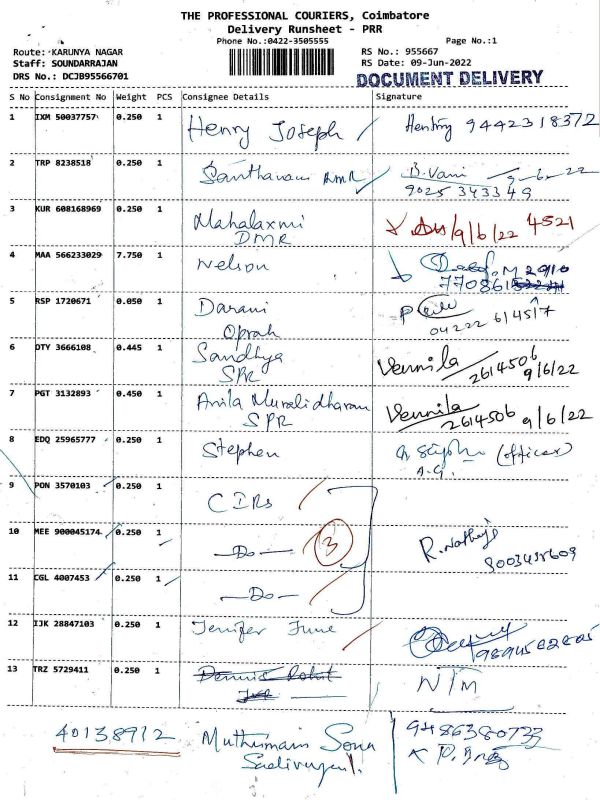 THE PROFESSIONAL COURIERS, Coimbatore
Delivery Runsheet - PRR
Phone No.:0422-3505555 Page No.:1
Route: KARUNYA NAGAR RS No.: 955667
Staff: SOUNDARRAJAN RS Date: 09-Jun-2022
DRS No.: DCJB95566701 DOCUMENT DELIVERY
S No Consignment No Weight PCS Consignee Details Signature
1 IXM 50037757 0.250 1 Henry Joseph 9442318372
2 TRP 8238518 0.250 1 Santhanam B.Vani 9-6-22
9025 343349
3 KUR 608168969 0.250 1 Mahalaxmi 9/6/22 4521
DMR
4 MAA 566233029 7.750 1 Nelson
5 RSP 1720671 0.050 1 Darani
Oprah 04222 614517
6 DTY 3666108 0.445 1 Sandhya Vennila 2614506
SPR 9/6/22
7 PGT 3132893 0.450 1 Anila Muralidharan Vennila 2614506 9/6/22
SPR
8 EDQ 25965777 0.250 1 Stephen (officer)
A.G.
9 PON 3570103 0.250 1 CIRs
10 MEE 900045174 0.250 1 -Do- 3
11 CGL 4007453 0.250 1 -Do-
12 IJK 28847103 0.250 1 Jenifer June
13 TRZ 5729411 0.250 1 Dennis N/M
40138912 9486380733